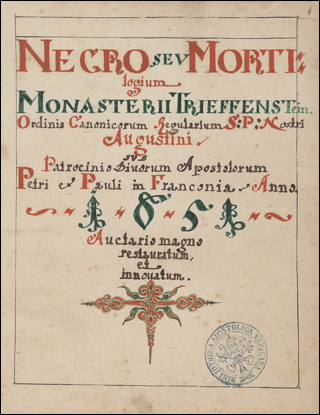 NECRO SEV MORTI-
logium
MONASTERII TRIEFFENSTein.
Ordinis Canonicorum Regularium S: P: Nostri
Augustini
sub
Patrocinio Divorum Apostolorum
Petri et Pauli in Franconia. Anno.
1651
Auctario magno
restauratum,
et
innovatum.
BIBLIOTHECA APOSTOLICA VATICANA